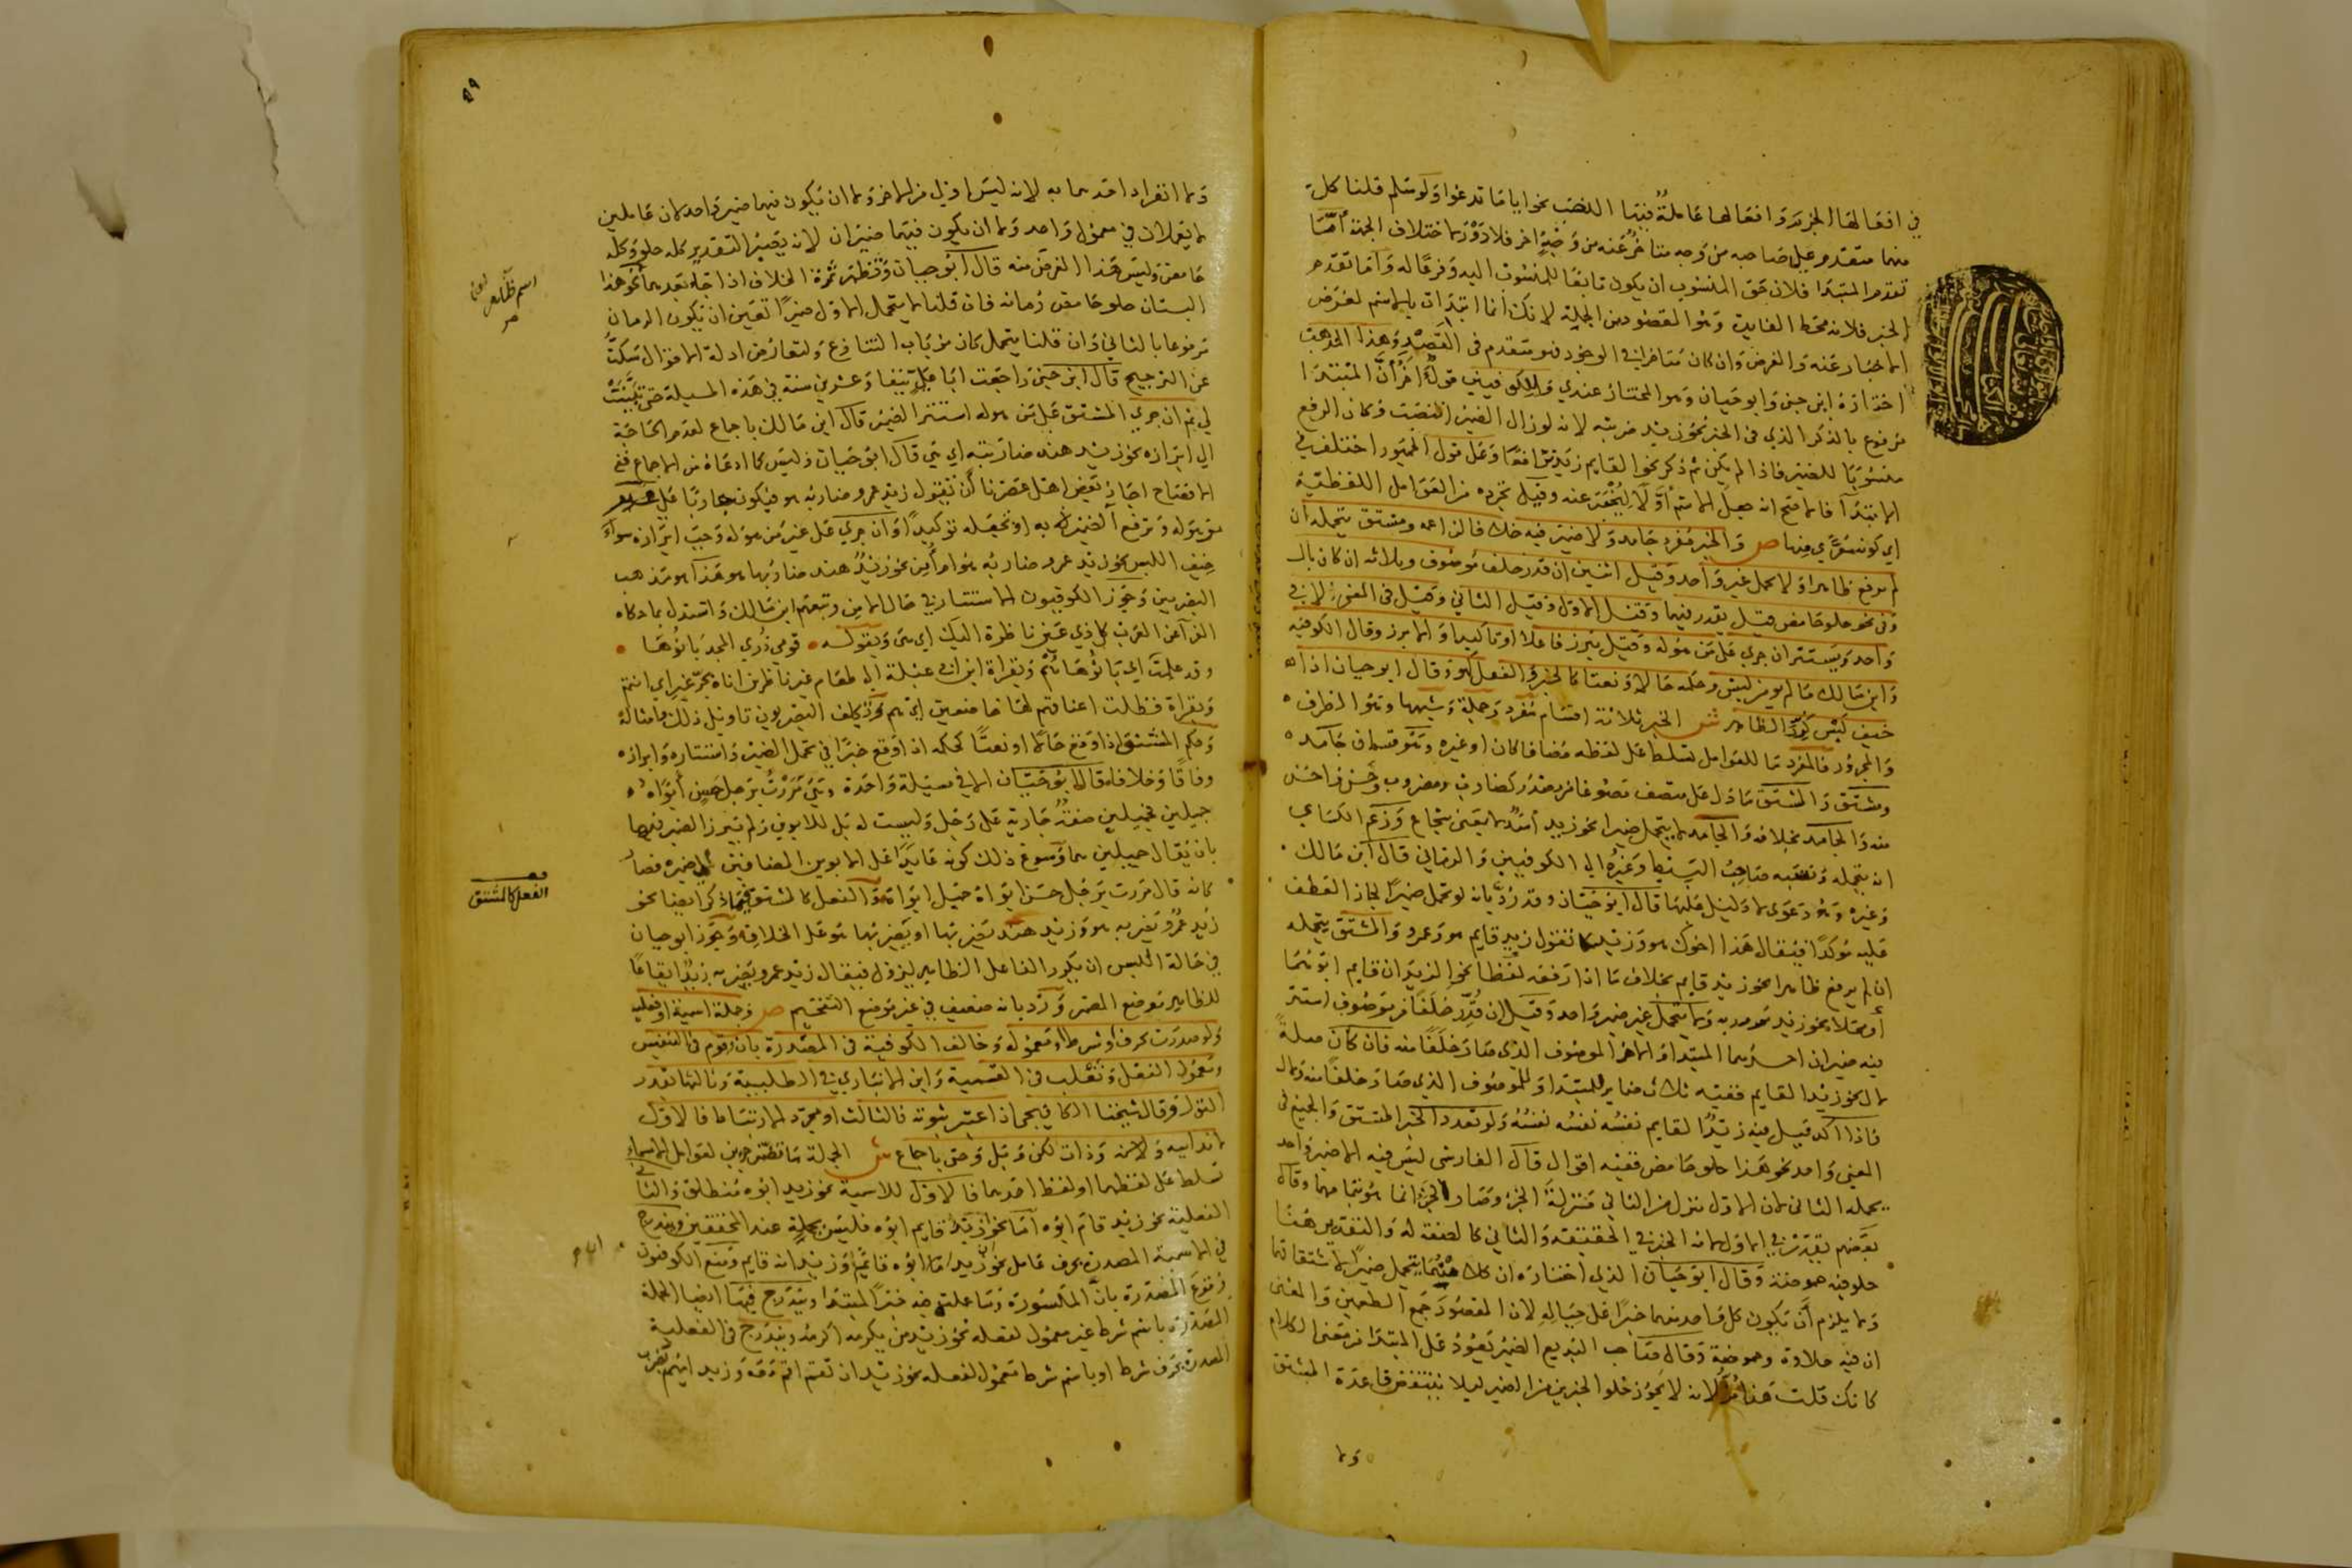 في افعالها الجزم وافعالها عاملة فيها النصب نحو اياما تدعوا ولو سلم قلنا كل
منهما متقدم على صاحبه من وجه متاخر عنه من وجه اخر فلا دور لاختلاف الجهة اما
تقدم المبتدا فلان حق المنسوب ان يكون تابعا للمنسوب اليه وفرعا له واما تقدم
الخبر فلانه محط الفايدة وهو المقصود من الجملة لانك انما ابتدات بالاسم لغرض
الاخبار عنه والغرض وان كان متاخرا في الوجود فهو متقدم في القصد وهذا المذهب
اختاره ابن جني وابو حيان وهو المختار عندي وللكوفيين قول اخر ان المبتدا
مرفوع بالذكر الذي في الخبر نحو زيد ضربته لانه لو زال الضمير انتصب وكان الرفع
منسوبا للضمير فاذا لم يكن ثم ذكر نحو القايم زيد ترافعا وعلى قول الجمهور اختلف في
الابتدا فالاصح انه جعل الاسم اولا ليخبر عنه وقيل تجرده من العوامل اللفظية
اي كونه معرى منها ص والخبر مفرد جامد ولا ضمير فيه خلافا لزاعمه ومشتق يتحمله ان
لم يرفع ظاهرا ولا يحمل غير واحد وقيل اثنين ان قدر خلف موصوف وثلاثة ان كان بال
وفي نحو حلو حامض قيل يقدر فيهما وقيل الاول وقيل الثاني وقيل في المعنى لا في
واحد ويستتر ان جرى على من هو له وقيل يبرز فاعلا او تاكيدا والا برز وقال الكوفية
وابن مالك ما لم يومن لبس وحكمه حالا ونعتا كالخبر والفعل كهو وقال ابو حيان اذا
خيف لبس كرر الظاهر ش الخبر ثلاثة اقسام مفرد وجملة وشبهها وهو الظرف
والمجرور فالمفرد ما للعوامل تسلط على لفظه مضافا كان او غيره وهو قسمان جامد
ومشتق والمشتق ما دل على متصف مصوغا من مصدر كضارب ومضروب وحسن واحسن
منه والجامد بخلافه والجامد لا يتحمل ضميرا نحو زيد اسد لا بمعنى شجاع وزعم الكساي
انه يتحمله ونسبه صاحب البسيط وغيره الى الكوفيين والرماني قال ابن مالك
وغيره وهو دعوى لا دليل عليها قال ابو حيان وقد رد بانه لو تحمل ضميرا لجاز العطف
عليه موكدا فيقال هذا اخوك هو وزيد كما تقول زيد قايم هو وعمرو والمشتق يتحمله
ان لم يرفع ظاهرا نحو زيد قايم بخلاف ما اذا رفعه لفظا نحو الزيدان قايم ابوهما
او محلا نحو زيد ممرور به ولا يتحمل غير ضمير واحد وقيل ان قدر خلفا من موصوف استتر
فيه ضميران احدهما للمبتدا والاخر للموصوف الذي صار خلفا منه فان كان صلة
لال نحو زيد القايم ففيه ثلاث ضماير للمبتدا وللموصوف الذي صار خلفا منه ولال
فاذا اكد قيل فيه زيد القايم نفسه نفسه نفسه ولو تعدد الخبر المشتق والجميع في
المعنى واحد نحو هذا حلو حامض ففيه اقوال قال الفارسي ليس فيه الا ضمير واحد
يحمله الثاني لان الاول تنزل من الثاني منزلة الجزء وصار الخبر انما هو بتمامهما وقال
بعضهم يقدر في الاول لانه الخبر في الحقيقة والثاني كالصفة له والتقدير هذا
حلو فيه حموضة وقال ابو حيان الذي اختاره ان كلا منهما يتحمل ضميرا لاشتقاقهما
ولا يلزم ان يكون كل واحد منهما خبرا على حياله لان المقصود جمع الطعمين والمعنى
ان فيه حلاوة وحموضة وقال صاحب البديع الضمير يعود على المبتدا من معنى الكلام
كانك قلت هذا مز لانه لا يجوز خلو الخبرين من الضمير ليلا ينتقض قاعدة المشتق
ولا
٤٩
ولا انفراد احدهما به لانه ليس اولى من الاخر ولا ان يكون فيهما ضمير واحد لان عاملين
لا يعملان في معمول واحد ولا ان يكون فيهما ضميران لانه يصير التقدير كله حلو وكله
حامض وليس هذا الغرض منه قال ابو حيان وتظهر ثمرة الخلاف اذا جاء بعدهما نحو هذا
البستان حلو حامض رمانه فان قلنا لا يتحمل الاول ضميرا تعين ان يكون الرمان
مرفوعا بالثاني وان قلنا يتحمل كان من باب التنازع ولتعارض ادلة الاقوال سكت
عن الترجيح قال ابن جني راجعت ابا علي نيفا وعشرين سنة في هذه المسيلة حتى تبينت
لي ثم ان جرى المشتق على من هو له استتر الضمير قال ابن مالك باجماع لعدم الحاجة
الى ابرازه نحو زيد هند ضاربته اي هي قال ابو حيان وليس كما ادعاه من الاجماع ففي
الافصاح اجاز بعض اهل عصرنا ان تقول زيد عمرو ضاربه هو فيكون جاريا على
من هو له وترفع الضمير به او تجعله توكيدا وان جرى على غير من هو له وجب ابرازه سواء
خيف اللبس نحو زيد عمرو ضاربه هو ام امن نحو زيد هند ضاربها هو هذا مذهب
البصريين وجوز الكوفيون الاستتار في حال الامن وتبعهم ابن مالك واستدل بما حكاه
الفرا عن العرب كل ذي عين ناظرة اليك اي هي وبقوله قومي ذرى المجد بانوها
وقد علمت اي بانوها هم وبقراة ابن ابي عبلة الى طعام غير ناظرين اناه بجر غير اي انتم
وبقراة فظلت اعناقهم لها خاضعين اي هم وتكلف البصريون تاويل ذلك وامثاله
وحكم المشتق اذا وقع حالا او نعتا كحكمه اذا وقع خبرا في تحمل الضمير واستتاره وابرازه
وفاقا وخلافا قال ابو حيان الا في مسيلة واحدة وهي مررت برجل حسن ابواه
جميلين فجميلين صفة جارية على رجل وليست له بل للابوين ولم يبرز الضمير فيها
بان يقال جميلين هما وسوغ ذلك كونه عايدا على الابوين المضافين الى ضميره فصار
كانه قال مررت برجل حسن ابواه جميل ابواه والفعل كالمشتق فيما ذكر ايضا نحو
زيد عمرو يضربه هو وزيد هند يضربها او يضربها هو على الخلاف وجوز ابو حيان
في حالة اللبس ان يكرر الفاعل الظاهر ليزول فيقال زيد عمرو يضربه زيد ايقاعا
للظاهر موضع المضمر ورد بانه ضعيف في غير موضع التفخيم ص وجملة اسمية او فعلية
ولو صدرت بحرف او شرط او معموله وخالف الكوفية في المصدرة بان وقوم في التنفيس
ومعمول الفعل وثعلب في القسمية وابن الانباري في الطلبية وثالثها يقدر
القول وقال شيخنا الكافيجي ان اعتبر ثبوته فالثالث او مجرد الارتباط فالاول
لا ندايية ولا مع وذات لكن وبل وحتى باجماع ش الجملة ما تضمن جزءين لعوامل الاسماء
تسلط على لفظهما او لفظ احدهما فالاول للاسمية نحو زيد ابوه منطلق والثاني
الفعلية نحو زيد قام ابوه اما نحو زيد قايم ابوه فليس بجملة عند المحققين ويندرج
في الاسمية المصدرة بحرف عامل نحو زيد ما ابوه قايما وزيد انه قايم ومنع الكوفيون
وقوع المصدرة بان المكسورة وما عملت فيه خبرا للمبتدا ويندرج فيها ايضا الجملة
المصدرة باسم شرط غير معمول لفعله نحو زيد من يكرمه اكرمه ويندرج في الفعلية
المصدرة بحرف شرط او باسم شرط معمول لفعله نحو زيد ان تقم اقم معه وزيد ايهم تضرب
اسم ظاهر
الفعل كالمشتق